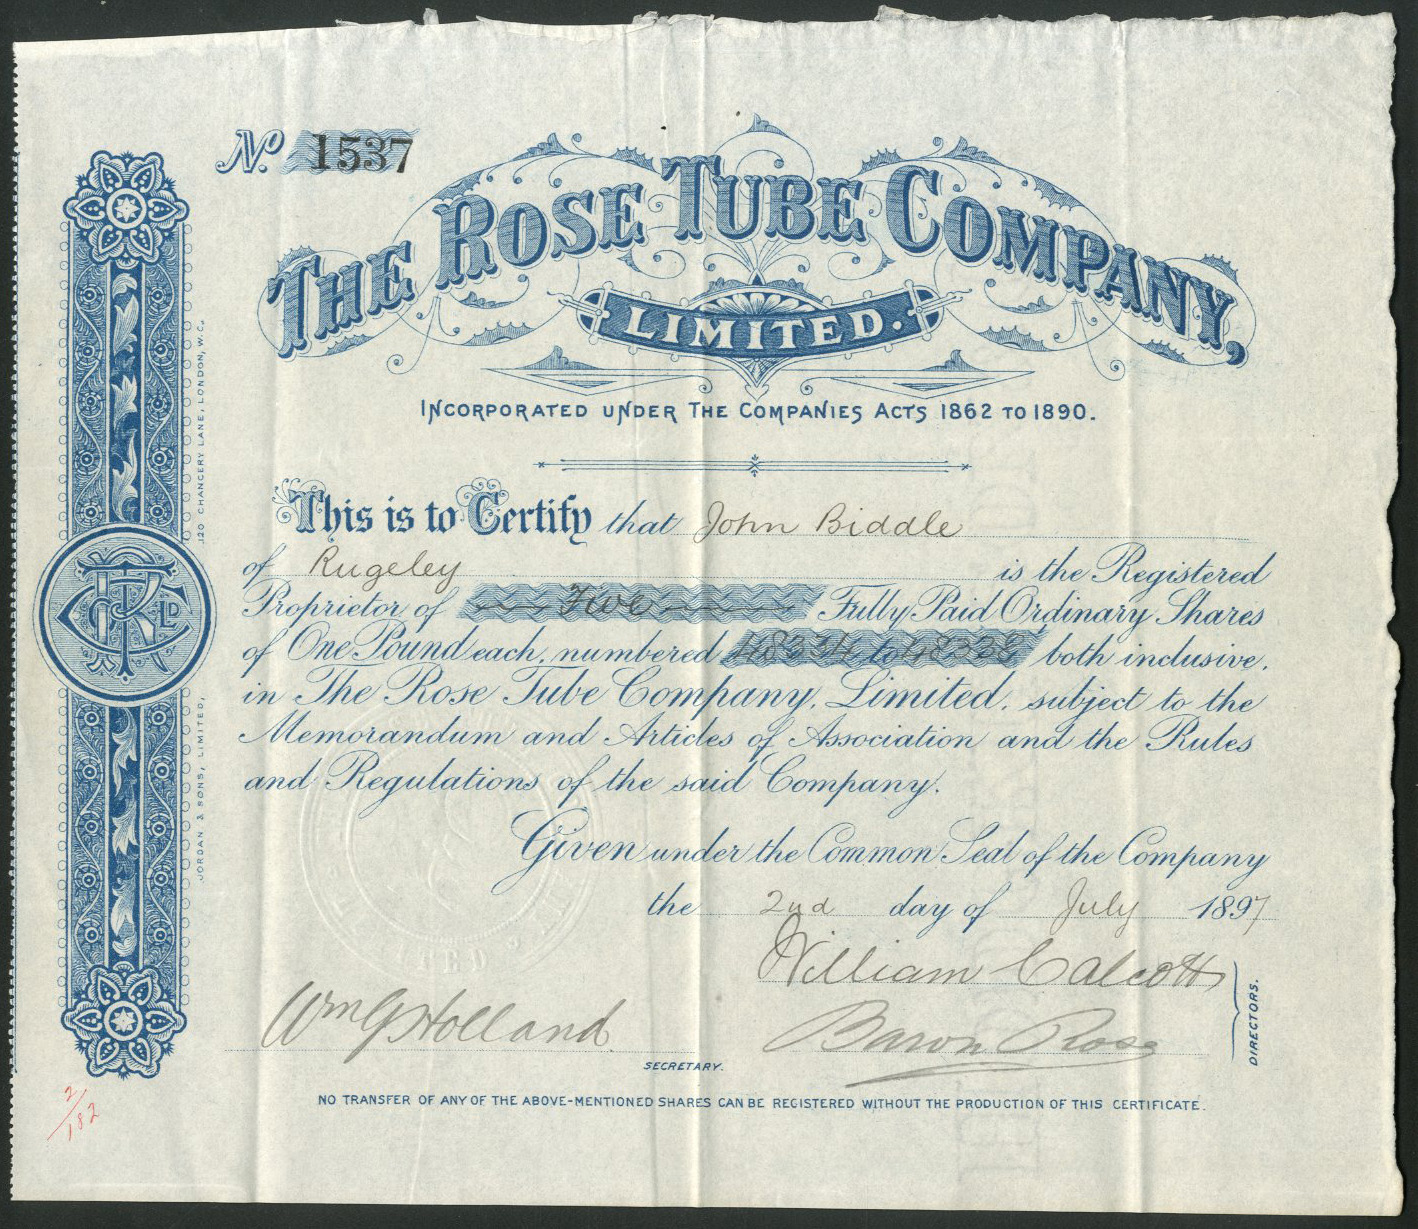 No. 1537
THE ROSE TUBE COMPANY,
LIMITED.
INCORPORATED UNDER THE COMPANIES ACTS 1862 TO 1890.
This is to Certify that John Biddle
of Rugeley is the Registered
Proprietor of Five Fully Paid Ordinary Shares
of One Pound each, numbered 48334 to 48338 both inclusive.
in The Rose Tube Company, Limited, subject to the
Memorandum and Articles of Association and the Rules
and Regulations of the said Company.
Given under the Common Seal of the Company
the 2nd day of July 1897
William Calcott
Wm G Holland
Baron Rose
DIRECTORS.
SECRETARY.
NO TRANSFER OF ANY OF THE ABOVE-MENTIONED SHARES CAN BE REGISTERED WITHOUT THE PRODUCTION OF THIS CERTIFICATE.
JORDAN & SONS, LIMITED, 120 CHANCERY LANE, LONDON, W.C.
2/182